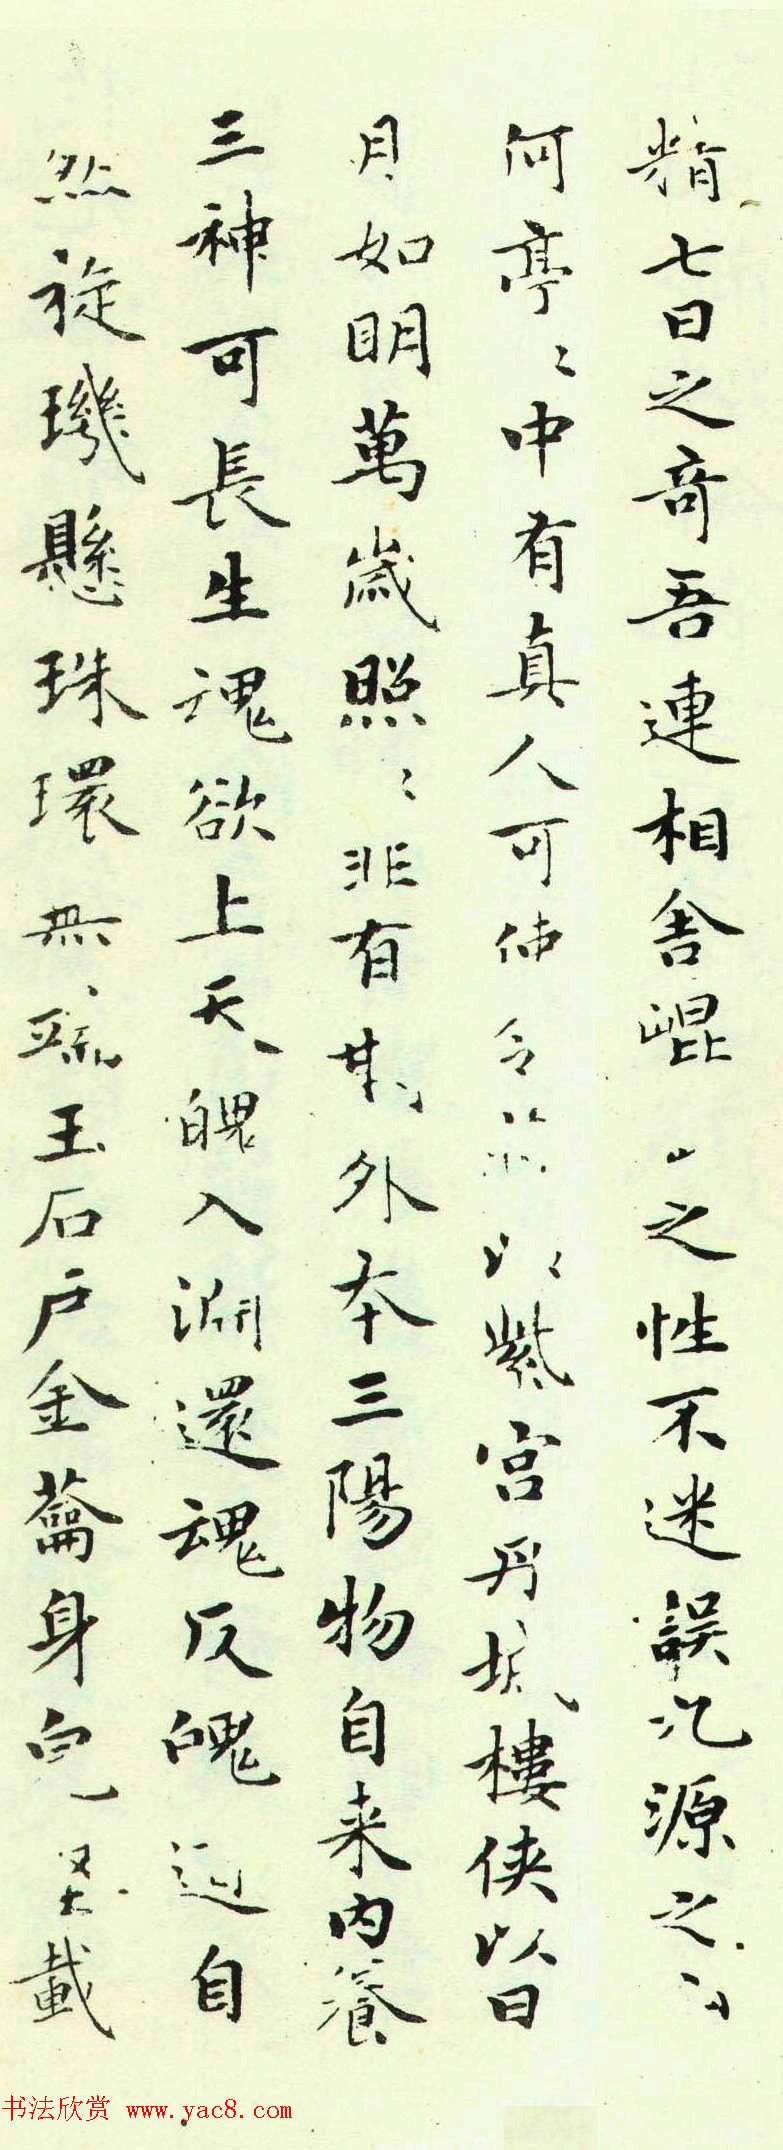 精七日之奇吾連相舍崐之性不迷誤九源之山
何亭〻中有真人可使令以紫宮丹城樓俠以日
月如明萬歲照〻非有期外本三陽物自来内養
三神可長生魂欲上天魄入淵還魂反魄道自
然旋璣懸珠環無端玉石戶金蘥身兒堅載
书法欣赏 www.yac8.com